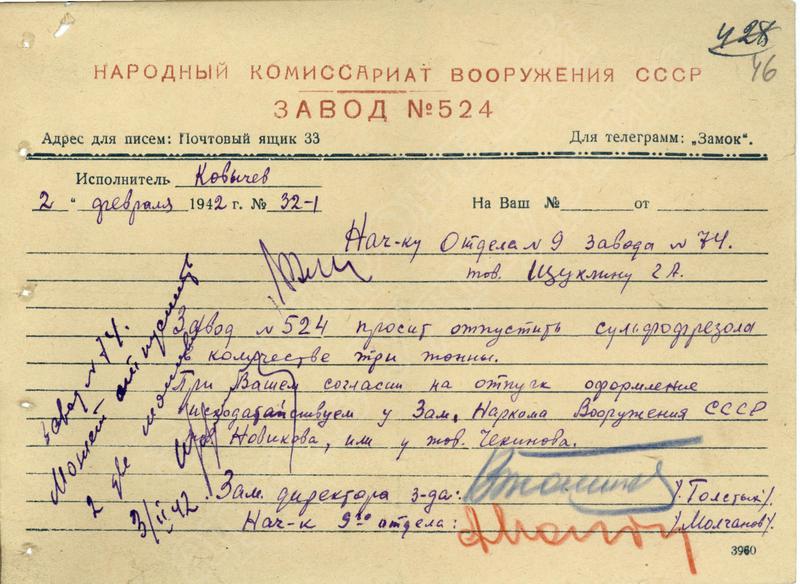 428
46
НАРОДНЫЙ КОМИССАРИАТ ВООРУЖЕНИЯ СССР
ЗАВОД №524
Адрес для писем: Почтовый ящик 33 Для телеграмм: „Замок".
Исполнитель Ковычев
2 " февраля 1942 г. № 32-1 На Ваш № от
Нач-ку Отдела N 9 Завода N 74.
тов. Щуклину Г.А.
Завод N 524 просит отпустить сульфофрезола
в количестве три тонны.
При Вашем согласии на отпуск оформление
исходатайствуем у Зам. Наркома Вооружения СССР
Новикова, или у тов. Чекинова.
Зам. директора з-да: /Толстых/.
Нач-к 9го отдела: /Молчанов/.
завод N 74.
Может отпустить
2 две тонны
3/II 42
3960